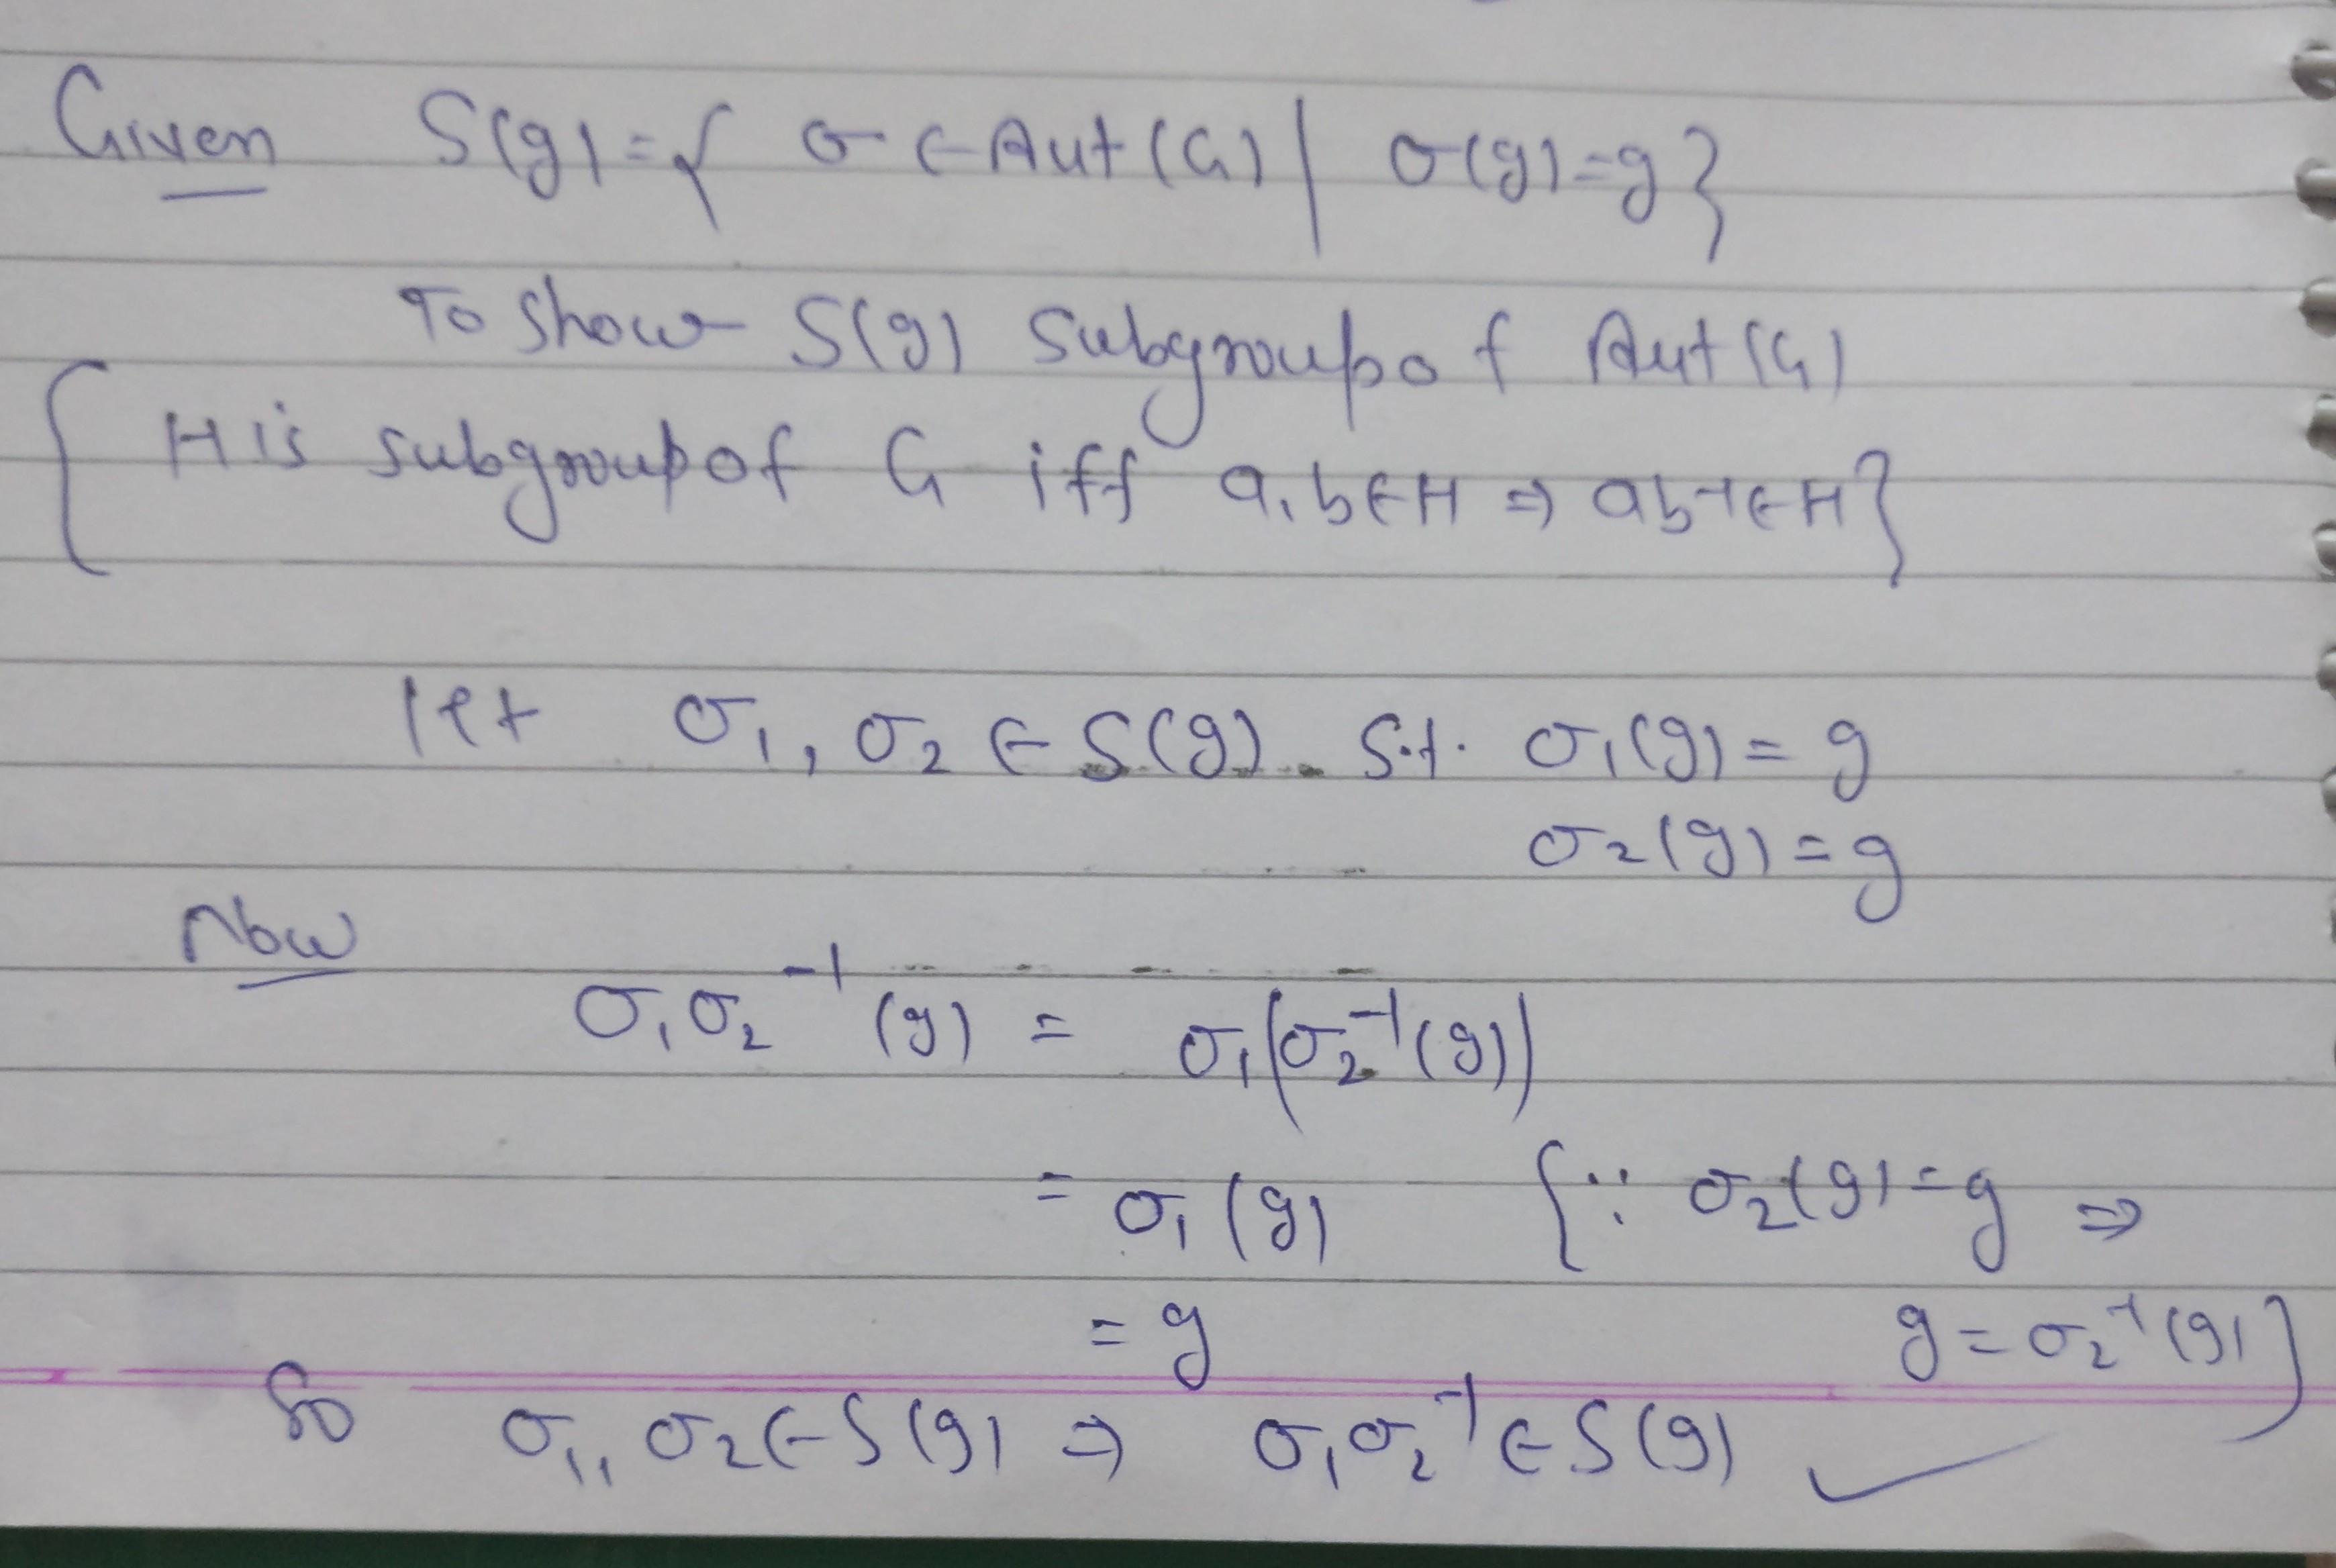 Given S(g) = { σ ∈ Aut(G) | σ(g) = g }
To show S(g) subgroup of Aut(G)
{ H is subgroup of G iff a, b ∈ H ⇒ ab⁻¹ ∈ H }
let σ₁, σ₂ ∈ S(g) s.t. σ₁(g) = g
σ₂(g) = g
Now
σ₁σ₂⁻¹(g) = σ₁(σ₂⁻¹(g))
= σ₁(g) { ∵ σ₂(g) = g ⇒
= g g = σ₂⁻¹(g) }
So σ₁, σ₂ ∈ S(g) ⇒ σ₁σ₂⁻¹ ∈ S(g) ✓